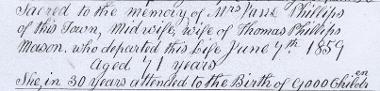 Sacred to the memory of Mrs Jane Phillips
of this Town, Midwife, wife of Thomas Phillips
Mason. who departed this Life June 7th 1859
Aged 71 years
She, in 30 years attended to the Birth of 9000 Childr en